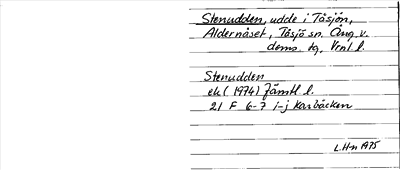 Stenudden, udde i Tåsjön,
Aldernäset, Tåsjö sn. Ång. v.
dems. tg, Vrnl. l.
Stenudden
ek (1974) Jämtl l.
21 F 6-7 i-j Karbäcken
L. H-n 1975